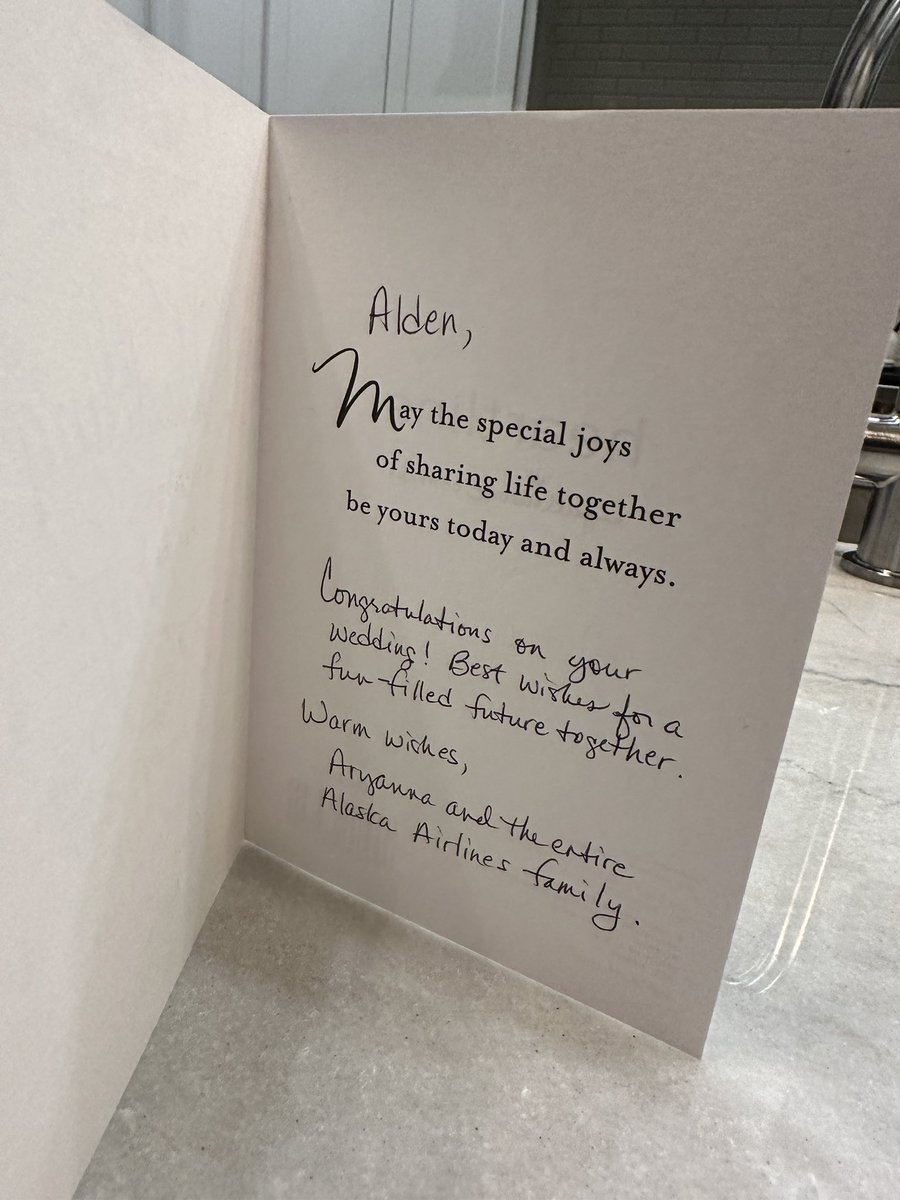 Alden,
May the special joys
of sharing life together
be yours today and always.
Congratulations on your
wedding! Best wishes for a
fun-filled future together.
Warm wishes,
Aryanna and the entire
Alaska Airlines family.